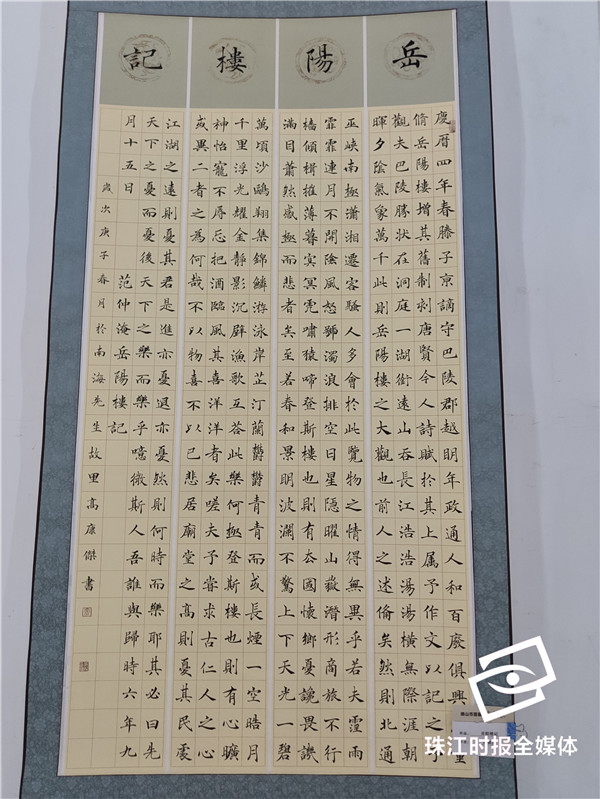 岳陽樓記
慶曆四年春滕子京謫守巴陵郡越明年政通人和百廢俱興重
脩岳陽樓增其舊制刻唐賢今人詩賦於其上属予作文以記之予
觀夫巴陵勝状在洞庭一湖銜遠山吞長江浩浩湯湯橫無際涯朝
暉夕陰氣象萬千此則岳陽樓之大觀也前人之述備矣然則北通
巫峽南極瀟湘遷客騷人多會於此覽物之情得無異乎若夫霪雨
霏霏連月不開陰風怒號濁浪排空日星隱曜山嶽潛形商旅不行
檣傾楫摧薄暮冥冥虎嘯猿啼登斯樓也則有去國懷鄉憂讒畏譏
滿目蕭然感極而悲者矣至若春和景明波瀾不驚上下天光一碧
萬頃沙鷗翔集錦鱗游泳岸芷汀蘭鬱鬱青青而或長煙一空皓月
千里浮光耀金靜影沉璧漁歌互答此樂何極登斯樓也則有心曠
神怡寵不辱忘把酒臨風其喜洋洋者矣嗟夫予嘗求古仁人之心
或異二者之為何哉不以物喜不以己悲居廟堂之高則憂其民處
江湖之遠則憂其君是進亦憂退亦憂然則何時而樂耶其必曰先
天下之憂而憂後天下之樂而樂乎噫微斯人吾誰與歸時六年九
月十五日 范仲淹岳陽樓記
歲次庚子春月於南海先生故里高康傑書
珠江时报全媒体